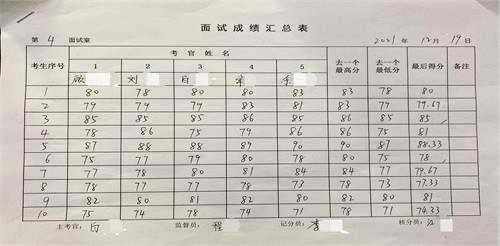 面试成绩汇总表
第 4 面试室 2021 年 12 月 19 日
考生序号 考官姓名 去一个最高分 去一个最低分 最后得分 备注
1 2 3 4 5
刘 白
1 80 78 80 80 83 83 78 80
2 79 79 79 83 81 83 79 79.67
3 85 85 85 86 85 86 85 85
4 78 86 75 79 86 86 75 81
5 87 88 88 89 90 90 87 88.33
6 75 77 79 80 78 80 75 78
7 77 78 80 81 84 84 77 79.67
8 78 77 77 78 73 78 73 77.33
9 82 80 81 82 80 82 80 81
10 75 74 78 74 71 78 71 74.33
主考官: 白 监督员: 程 记分员: 李 核分员: